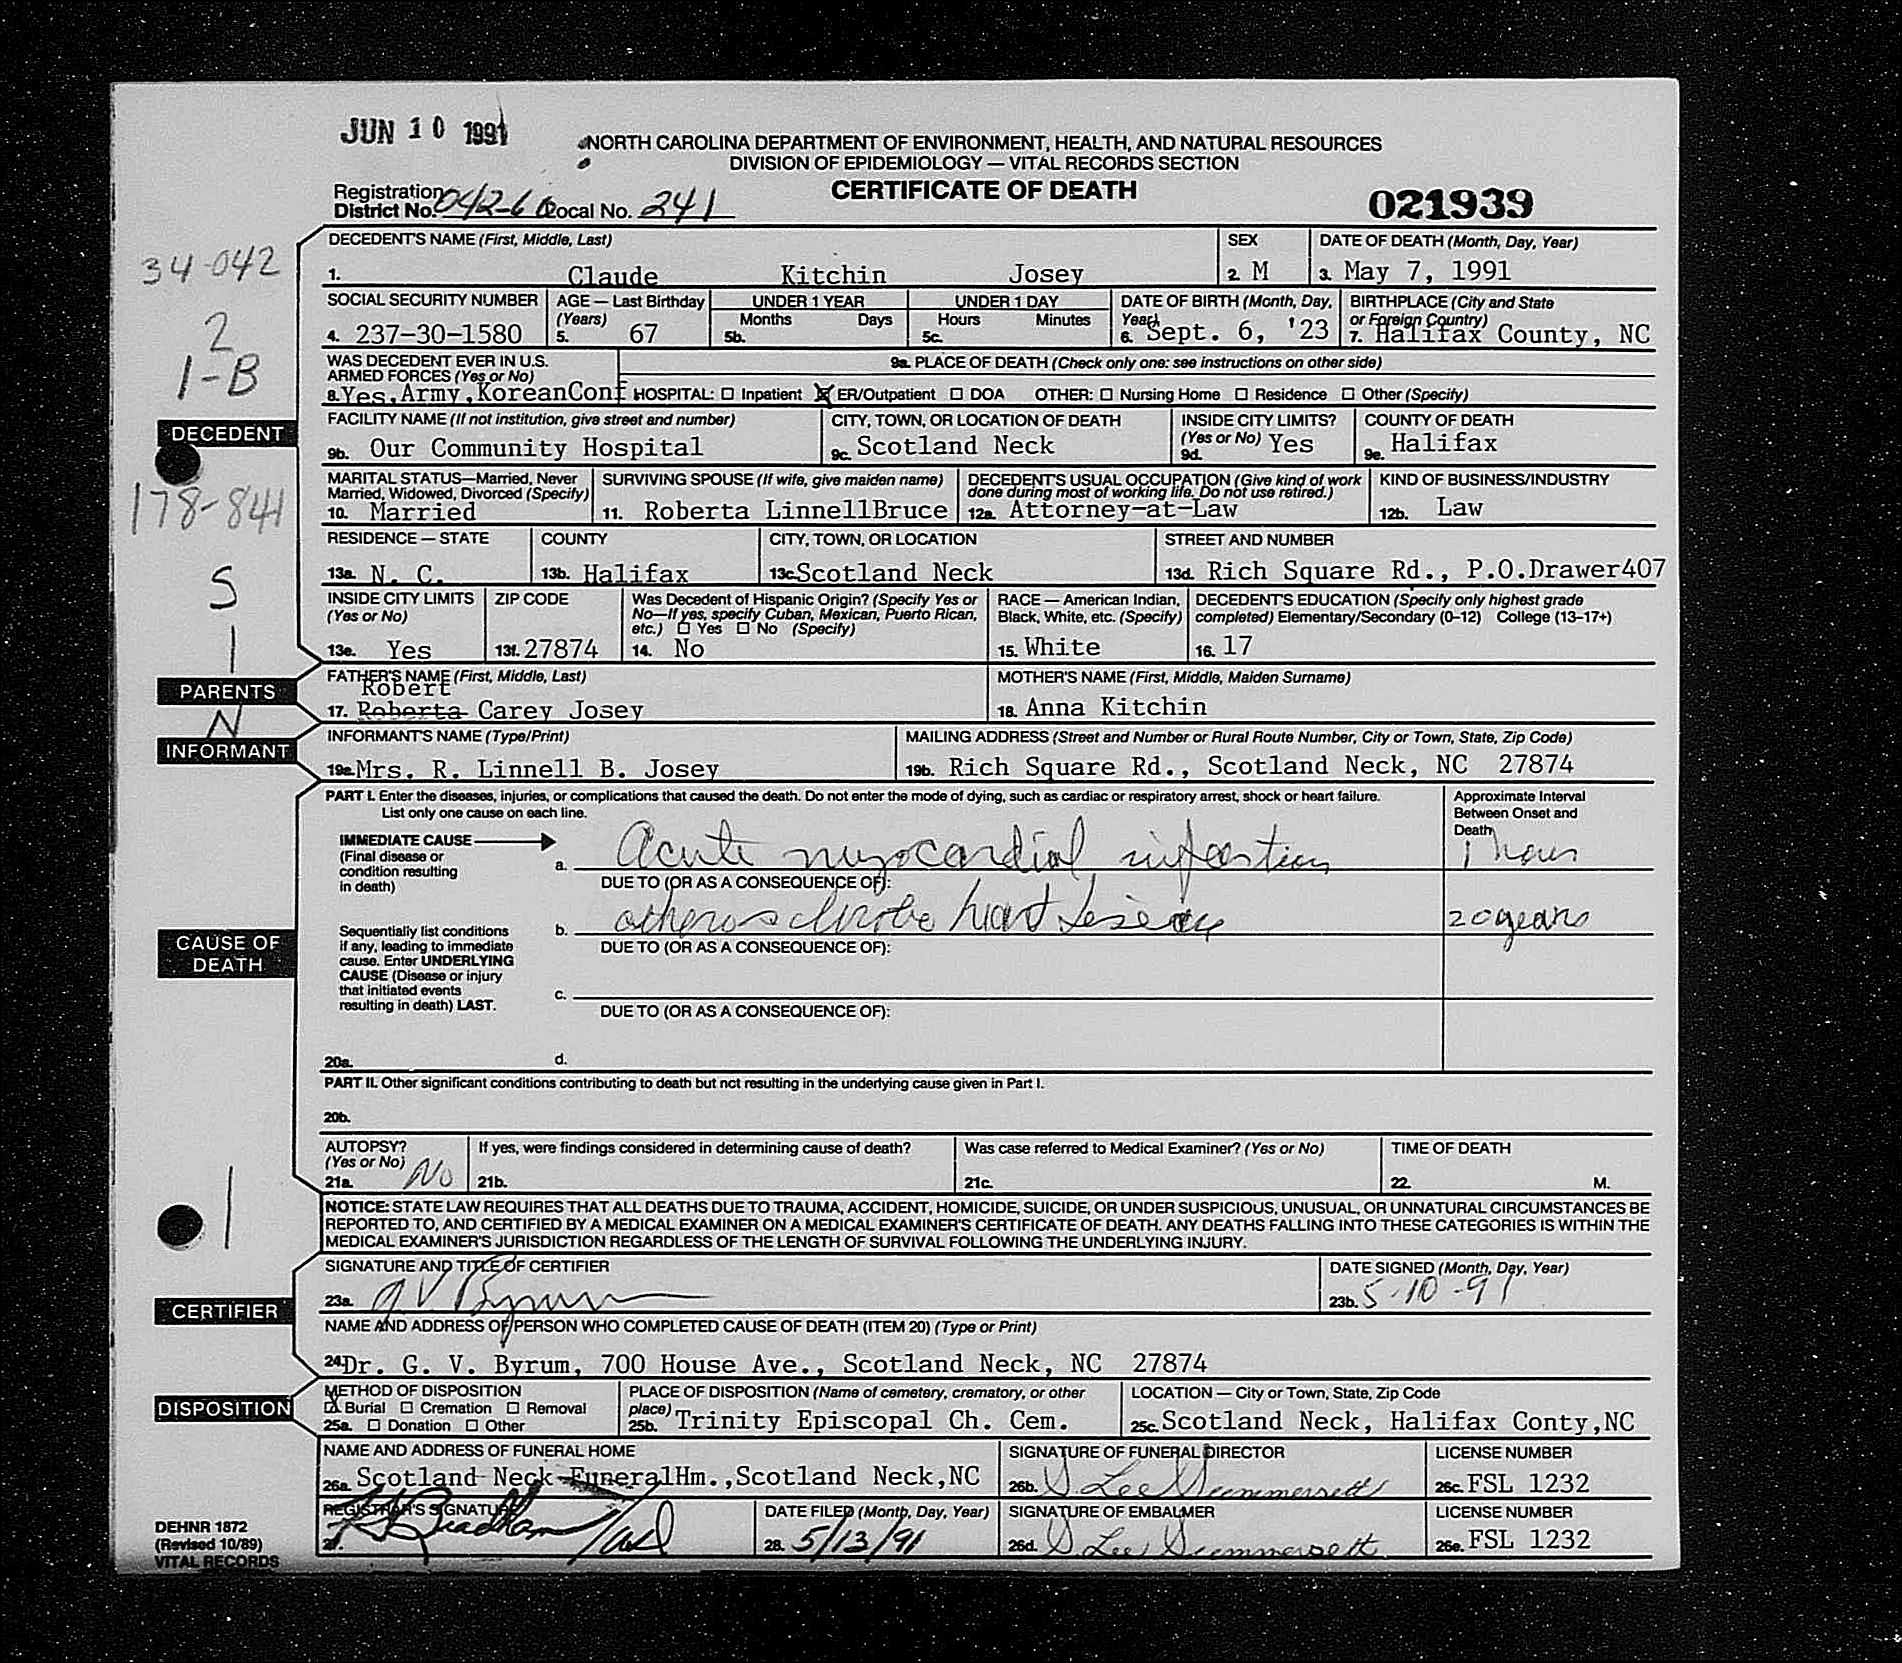 JUN 10 1991
NORTH CAROLINA DEPARTMENT OF ENVIRONMENT, HEALTH, AND NATURAL RESOURCES
DIVISION OF EPIDEMIOLOGY — VITAL RECORDS SECTION
CERTIFICATE OF DEATH
Registration District No. 042-60 Local No. 241
021939
34-042
2
1-B
DECEDENT
178-841
S
1
DECEDENT'S NAME (First, Middle, Last) SEX DATE OF DEATH (Month, Day, Year)
1. Claude Kitchin Josey 2. M 3. May 7, 1991
SOCIAL SECURITY NUMBER AGE — Last Birthday (Years) UNDER 1 YEAR UNDER 1 DAY DATE OF BIRTH (Month, Day, Year) BIRTHPLACE (City and State or Foreign Country)
Months Days Hours Minutes
4. 237-30-1580 5. 67 5b. 5c. 6. Sept. 6, '23 7. Halifax County, NC
WAS DECEDENT EVER IN U.S. ARMED FORCES (Yes or No) 9a. PLACE OF DEATH (Check only one: see instructions on other side)
8. Yes,Army,KoreanConf HOSPITAL: ☐ Inpatient ☒ ER/Outpatient ☐ DOA OTHER: ☐ Nursing Home ☐ Residence ☐ Other (Specify)
FACILITY NAME (If not institution, give street and number) CITY, TOWN, OR LOCATION OF DEATH INSIDE CITY LIMITS? (Yes or No) COUNTY OF DEATH
9b. Our Community Hospital 9c. Scotland Neck 9d. Yes 9e. Halifax
MARITAL STATUS—Married, Never Married, Widowed, Divorced (Specify) SURVIVING SPOUSE (If wife, give maiden name) DECEDENT'S USUAL OCCUPATION (Give kind of work done during most of working life. Do not use retired.) KIND OF BUSINESS/INDUSTRY
10. Married 11. Roberta LinnellBruce 12a. Attorney-at-Law 12b. Law
RESIDENCE — STATE COUNTY CITY, TOWN, OR LOCATION STREET AND NUMBER
13a. N. C. 13b. Halifax 13c. Scotland Neck 13d. Rich Square Rd., P.O.Drawer407
INSIDE CITY LIMITS (Yes or No) ZIP CODE Was Decedent of Hispanic Origin? (Specify Yes or No—If yes, specify Cuban, Mexican, Puerto Rican, etc.) ☐ Yes ☐ No (Specify) RACE — American Indian, Black, White, etc. (Specify) DECEDENT'S EDUCATION (Specify only highest grade completed) Elementary/Secondary (0-12) College (13-17+)
13e. Yes 13f. 27874 14. No 15. White 16. 17
PARENTS
N
FATHER'S NAME (First, Middle, Last) MOTHER'S NAME (First, Middle, Maiden Surname)
Robert
17. Roberta Carey Josey 18. Anna Kitchin
INFORMANT
INFORMANT'S NAME (Type/Print) MAILING ADDRESS (Street and Number or Rural Route Number, City or Town, State, Zip Code)
19a. Mrs. R. Linnell B. Josey 19b. Rich Square Rd., Scotland Neck, NC 27874
PART I. Enter the diseases, injuries, or complications that caused the death. Do not enter the mode of dying, such as cardiac or respiratory arrest, shock or heart failure.
List only one cause on each line.
Approximate Interval Between Onset and Death
IMMEDIATE CAUSE (Final disease or condition resulting in death)
a. Acute myocardial infarction 1 hour
DUE TO (OR AS A CONSEQUENCE OF):
CAUSE OF DEATH
Sequentially list conditions if any, leading to immediate cause. Enter UNDERLYING CAUSE (Disease or injury that initiated events resulting in death) LAST.
b. atherosclerotic heart disease 20 years
DUE TO (OR AS A CONSEQUENCE OF):
c.
DUE TO (OR AS A CONSEQUENCE OF):
20a. d.
PART II. Other significant conditions contributing to death but not resulting in the underlying cause given in Part I.
20b.
AUTOPSY? (Yes or No) If yes, were findings considered in determining cause of death? Was case referred to Medical Examiner? (Yes or No) TIME OF DEATH
21a. No 21b. 21c. 22. M.
1
NOTICE: STATE LAW REQUIRES THAT ALL DEATHS DUE TO TRAUMA, ACCIDENT, HOMICIDE, SUICIDE, OR UNDER SUSPICIOUS, UNUSUAL, OR UNNATURAL CIRCUMSTANCES BE
REPORTED TO, AND CERTIFIED BY A MEDICAL EXAMINER ON A MEDICAL EXAMINER'S CERTIFICATE OF DEATH. ANY DEATHS FALLING INTO THESE CATEGORIES IS WITHIN THE
MEDICAL EXAMINER'S JURISDICTION REGARDLESS OF THE LENGTH OF SURVIVAL FOLLOWING THE UNDERLYING INJURY.
CERTIFIER
SIGNATURE AND TITLE OF CERTIFIER DATE SIGNED (Month, Day, Year)
23a. G V Byrum 23b. 5-10-91
NAME AND ADDRESS OF PERSON WHO COMPLETED CAUSE OF DEATH (ITEM 20) (Type or Print)
24. Dr. G. V. Byrum, 700 House Ave., Scotland Neck, NC 27874
DISPOSITION
METHOD OF DISPOSITION PLACE OF DISPOSITION (Name of cemetery, crematory, or other place) LOCATION — City or Town, State, Zip Code
☒ Burial ☐ Cremation ☐ Removal
25a. ☐ Donation ☐ Other 25b. Trinity Episcopal Ch. Cem. 25c. Scotland Neck, Halifax Conty,NC
NAME AND ADDRESS OF FUNERAL HOME SIGNATURE OF FUNERAL DIRECTOR LICENSE NUMBER
26a. Scotland Neck FuneralHm.,Scotland Neck,NC 26b. S Lee Summersett 26c. FSL 1232
REGISTRAR'S SIGNATURE DATE FILED (Month, Day, Year) SIGNATURE OF EMBALMER LICENSE NUMBER
27. 28. 5/13/91 26d. S. Lee Summersett 26e. FSL 1232
DEHNR 1872
(Revised 10/89)
VITAL RECORDS